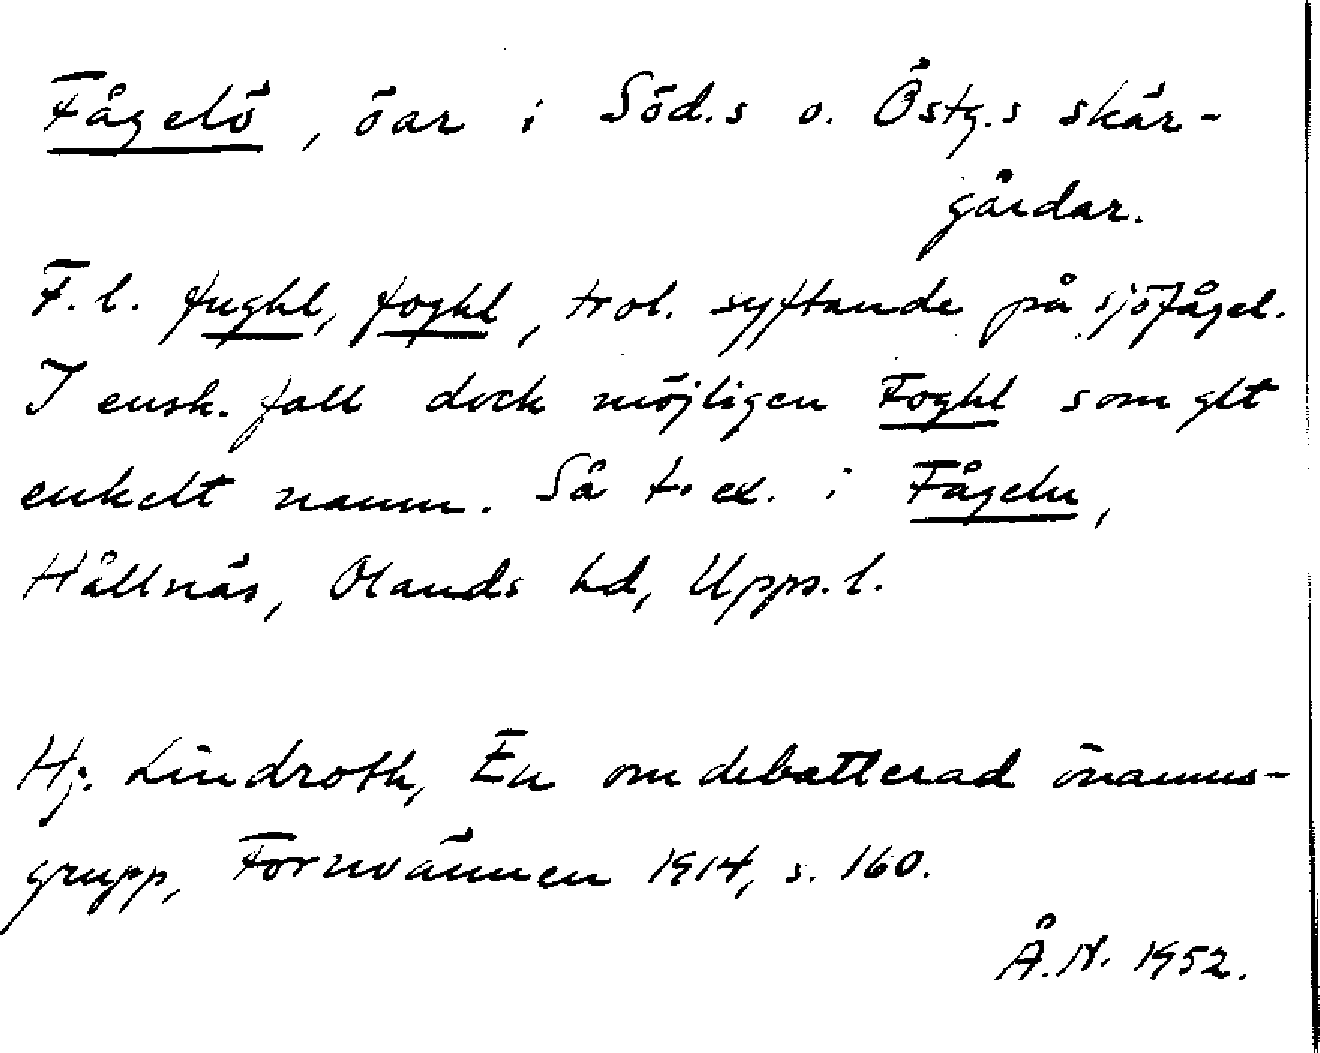 Fågelö, öar i Söd.s o. Östg.s skär-
gårdar.
F.l. fughl, foghl, trol. syftande på sjöfågel.
I ensk. fall dock möjligen Foghl som glt
enkelt namn. Så t.ex. i Fågeln,
Hållnäs, Olands hd, Upps.l.
Hj. Lindroth, En omdebatterad önamns-
grupp, Fornvännen 1914, s. 160.
Å.N. 1952.